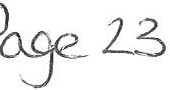 Page 23